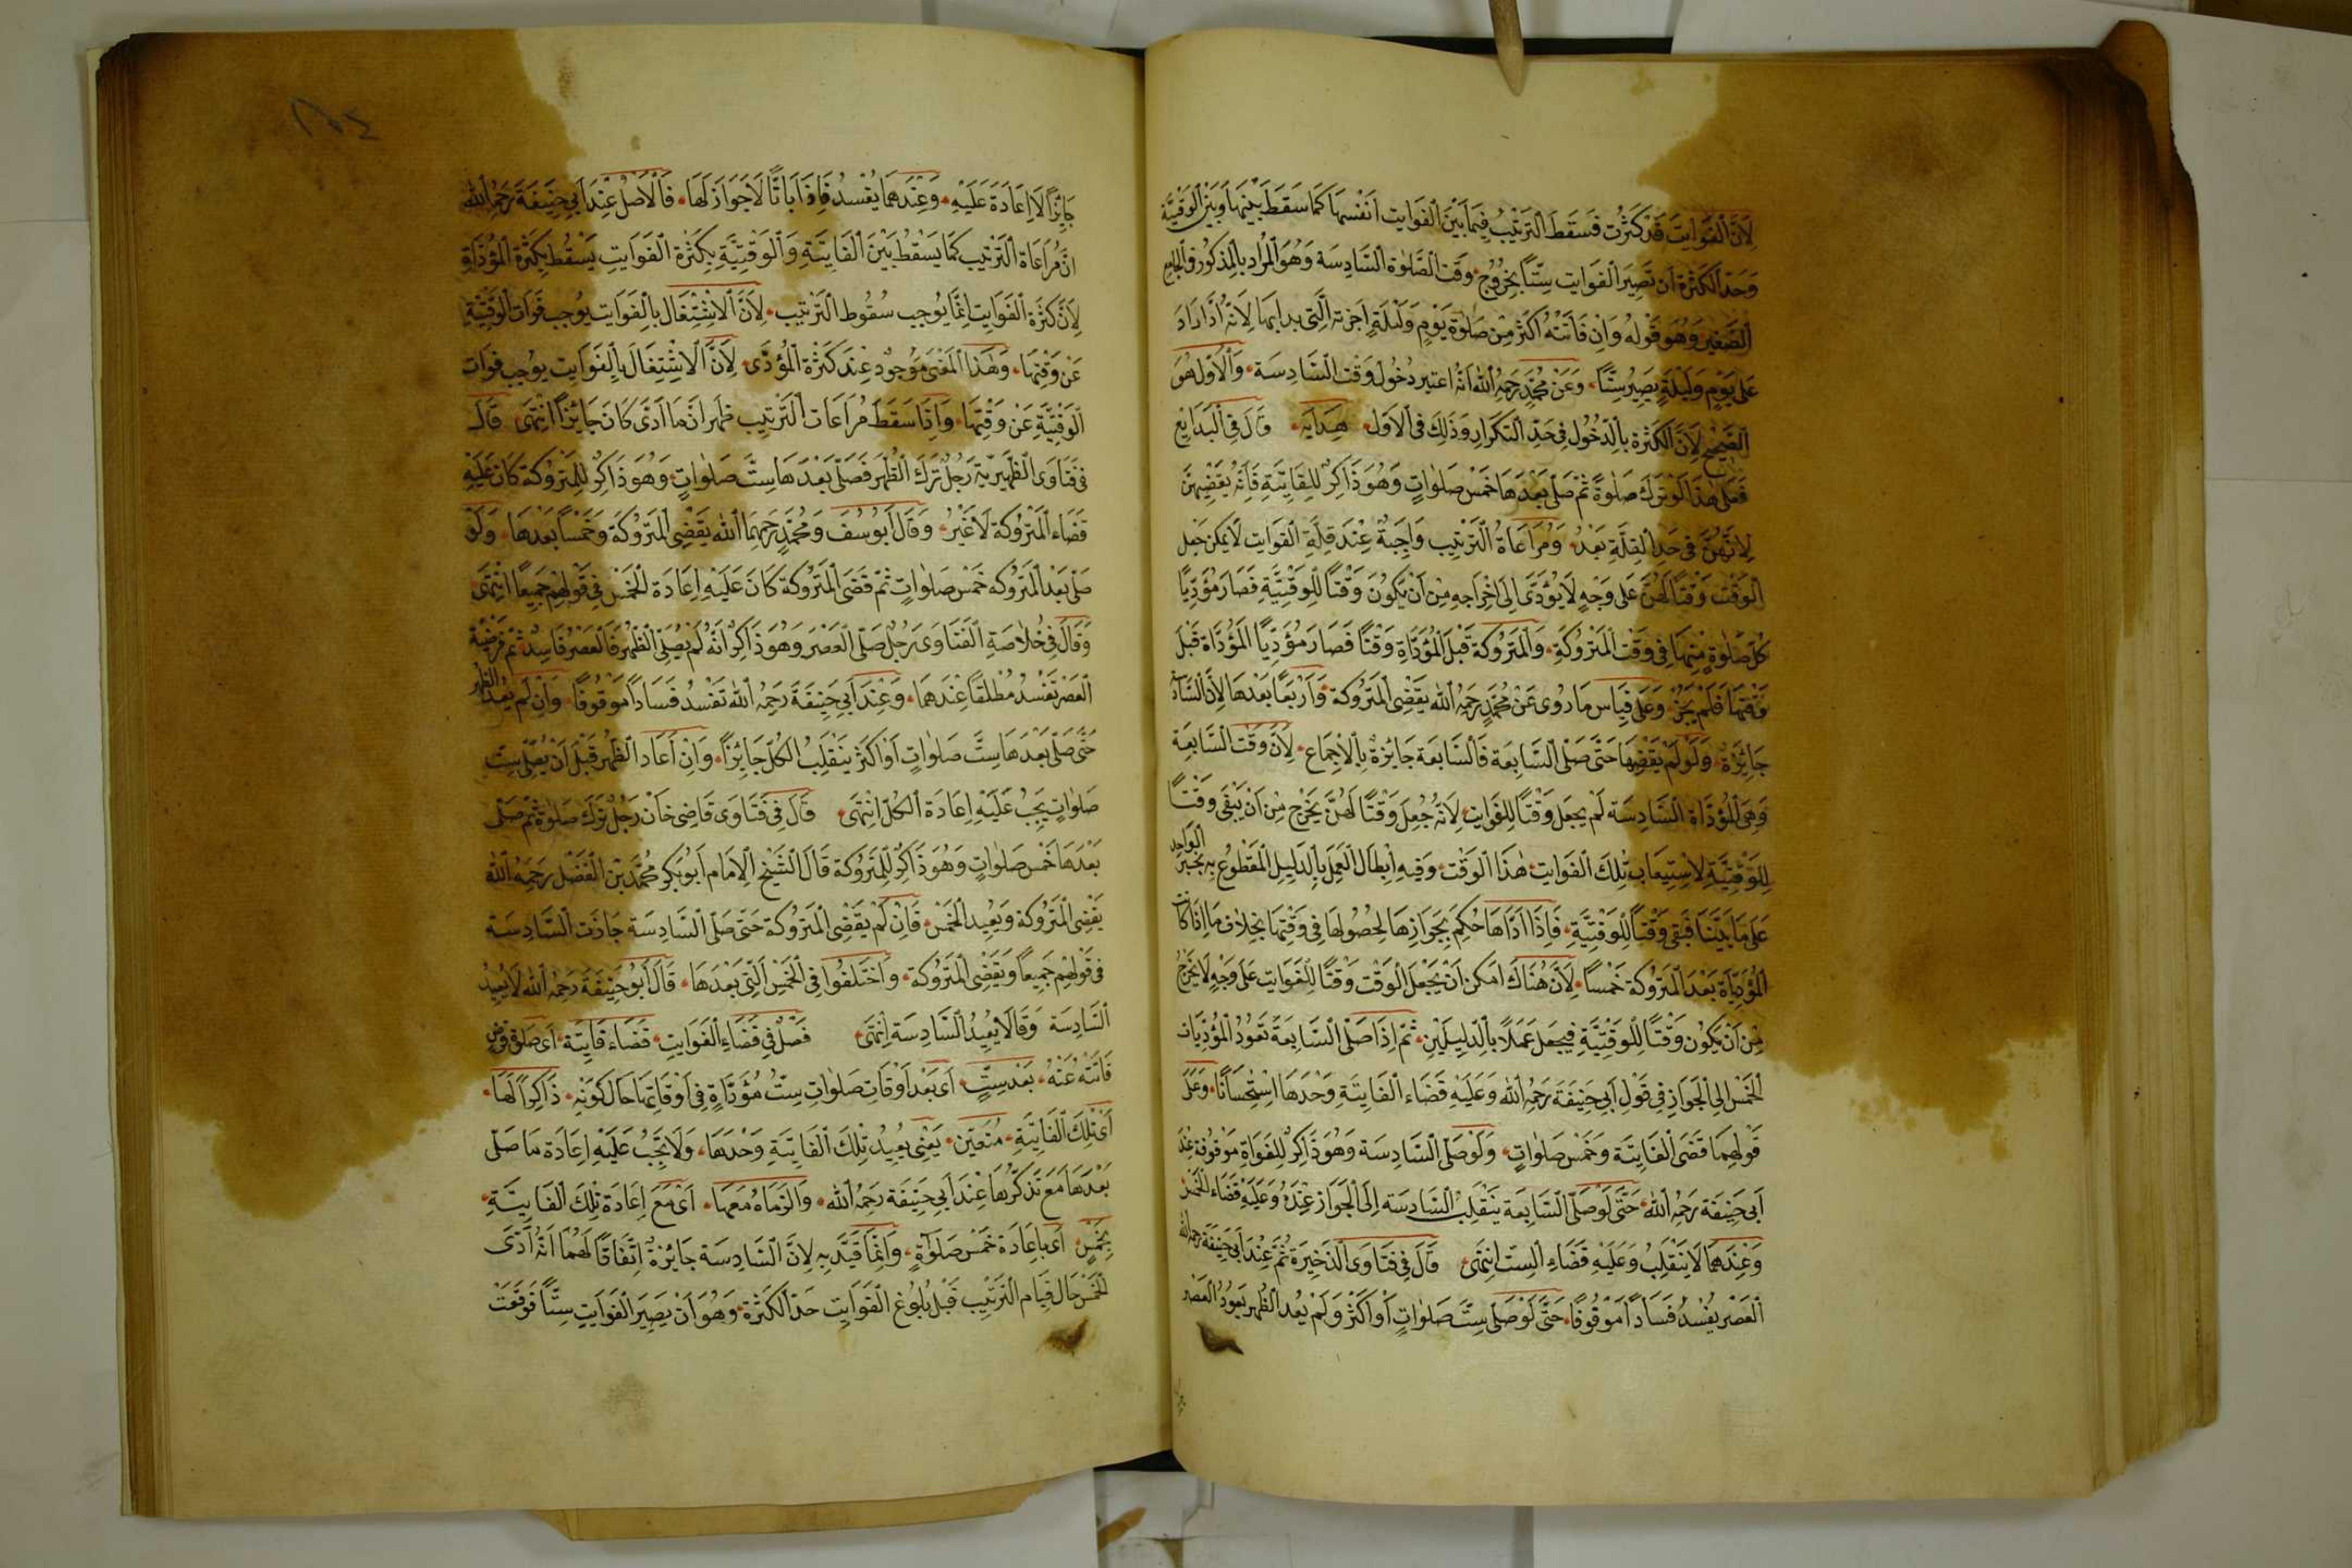 لِاَنَّ الْفَوَايِتَ قَدْ كَثُرَتْ فَسَقَطَ التَّرْتِيْبُ فِيمَا بَيْنَ الْفَوَايِت اَنْفُسِهَا كَمَا سَقَطَ بَيْنَهَا وَبَيْنَ الْوَقْتِيَّة
وَحَدُّ الْكَثْرَةِ اَنْ تَصِيْرَ الْفَوَايِت سِتّاً بِخُرُوْجِ وَقْتِ الصَّلٰوةِ السَّادِسَة وَهُوَ الْمُرَادُ بِالْمَذْكُوْرِ فِى الْجَامِعِ
الصَّغِيْرِ وَهُوَ قَوْلُهُ وَاِنْ فَاتَتْهُ اَكْثَرُ مِنْ صَلٰوةِ يَوْمٍ وَلَيْلَةٍ اَجْزَتْهُ الَّتِى بَدَاَ بِهَا لِاَنَّهُ اِذَا زَادَ
عَلٰى يَوْمٍ وَلَيْلَةٍ يَصِيْرُ سِتًّا وَعَنْ مُحَمَّدٍ رَحِمَهُ اللّٰه اَنَّهُ اعْتَبَرَ دُخُوْلَ وَقْتِ السَّادِسَةِ وَالْاَوَّلُ هُوَ
الصَّحِيْحُ لِاَنَّ الْكَثْرَةَ بِالدُّخُوْلِ فِى حَدِّ التَّكْرَارِ وَذٰلِكَ فِى الْاَوَّل هِدَايَه قَالَ فِى الْبَدَايِع
فَعَلٰى هٰذَا لَوْ تَرَكَ صَلٰوةً ثُمَّ صَلَّى بَعْدَهَا خَمْسَ صَلَوَاتٍ وَهُوَ ذَاكِرٌ لِلْفَايِتَةِ فَاِنَّهُ يَقْضِيْهِنَّ
لِاَنَّهُنَّ فِى حَدِّ الْقِلَّةِ بَعْدُ وَمُرَاعَاةُ التَّرْتِيْبِ وَاجِبَةٌ عِنْدَ قِلَّةِ الْفَوَايِت لَا يُمْكِنُ جَعْلُ
الْوَقْتِ وَقْتًا لَهُنَّ عَلٰى وَجْهٍ لَا يُؤَدِّى اِلٰى اِخْرَاجِهِ مِنْ اَنْ يَكُوْنَ وَقْتًا لِلْوَقْتِيَّةِ فَصَارَ مُؤَدِّيًا
كُلَّ صَلٰوةٍ مِنْهَا فِى وَقْتِ الْمَتْرُوْكَةِ وَالْمَتْرُوْكَة قَبْلَ الْمُؤَدَّاةِ وَقْتًا فَصَارَ مُؤَدِّيًا الْمُؤَدَّاةَ قَبْلَ
وَقْتِهَا فَلَمْ يَجُزْ وَعَلٰى قِيَاسِ مَا رُوِىَ عَنْ مُحَمَّدٍ رَحِمَهُ اللّٰه يَقْضِى الْمَتْرُوْكَة وَاَرْبَعًا بَعْدَهَا لِاَنَّ السَّادِسَةَ
جَائِزَةٌ وَلَوْ لَمْ يَقْضِهَا حَتَّى صَلَّى السَّابِعَة فَالسَّابِعَة جَائِزَةٌ بِالْاِجْمَاعِ لِاَنَّ وَقْتَ السَّابِعَةِ
وَهِىَ الْمُؤَدَّاة السَّادِسَة لَمْ يُجْعَلْ وَقْتًا لِلْفَوَايِتِ لِاَنَّهُ جُعِلَ وَقْتًا لَهُنَّ يَخْرُجُ مِنْ اَنْ يَبْقَى وَقْتًا
لِلْوَقْتِيَّةِ لِاسْتِيْعَابِ تِلْكَ الْفَوَايِتِ هٰذَا الْوَقْت وَفِيْهِ اِبْطَالُ الْعَمَلِ بِالدَّلِيْلِ الْمَقْطُوْعِ بِهِ بِخَبَرِ الْوَاحِدِ
عَلٰى مَا بَيَّنَّا فَبَقِىَ وَقْتًا لِلْوَقْتِيَّةِ فَاِذَا اَدَّاهَا حُكِمَ بِجَوَازِهَا لِحُصُوْلِهَا فِى وَقْتِهَا بِخِلَافِ مَا اِذَا كَانَت
الْمُؤَدَّاة بَعْدَ الْمَتْرُوْكَة خَمْسًا لِاَنَّ هُنَاكَ اَمْكَنَ اَنْ يُجْعَلَ الْوَقْت وَقْتًا لِلْفَوَايِت عَلٰى وَجْهٍ لَا يَخْرُجُ
مِنْ اَنْ يَكُوْنَ وَقْتًا لِلْوَقْتِيَّةِ فَيُجْعَلُ عَمَلًا بِالدَّلِيْلَيْنِ ثُمَّ اِذَا صَلَّى السَّابِعَةَ تَعُوْدُ الْمُؤَدَّيَات
الْخَمْسُ اِلَى الْجَوَازِ فِى قَوْلِ اَبِى حَنِيْفَةَ رَحِمَهُ اللّٰه وَعَلَيْهِ قَضَاء الْفَايِتَةِ وَحْدَهَا اِسْتِحْسَانًا وَعَلٰى
قَوْلِهِمَا قَضَى الْفَايِتَةَ وَخَمْسَ صَلَوَاتٍ وَلَوْ صَلَّى السَّادِسَة وَهُوَ ذَاكِرٌ لِلْفَوَاةِ مَوْقُوْفَة عِنْدَ
اَبِى حَنِيْفَة رَحِمَهُ اللّٰه حَتَّى لَوْ صَلَّى السَّابِعَة يَنْقَلِبُ السَّادِسَة اِلَى الْجَوَاز عِنْدَهُ وَعَلَيْهِ قَضَاء الْخَمْسِ
وَعِنْدَهُمَا لَا يَنْقَلِبُ وَعَلَيْهِ قَضَاءُ السِّتِّ اِنْتَهَى قَالَ فِى فَتَاوَى الذَّخِيْرَة ثُمَّ عِنْدَ اَبِى حَنِيْفَة رحمه الله
الْعَصْر يَفْسُدُ فَسَادًا مَوْقُوْفًا حَتَّى لَوْ صَلَّى سِتَّ صَلَوَاتٍ اَوْ اَكْثَرَ وَلَمْ يُعِدِ الظُّهْر يَعُوْدُ الْعَصْر
جَائِزًا لَا اِعَادَةَ عَلَيْهِ وَعِنْدَهُمَا يَفْسُدُ فَاِذًا بَاتًّا لَا جَوَازَ لَهَا فَالْاَصْلُ عِنْدَ اَبِى حَنِيْفَةَ رَحِمَهُ اللّٰه
اَنَّ مُرَاعَاة التَّرْتِيْبِ كَمَا يَسْقُطُ بَيْنَ الْفَايِتَةِ وَالْوَقْتِيَّةِ بِكَثْرَةِ الْفَوَايِتِ يَسْقُطُ بِكَثْرَةِ الْمُؤَدَّاةِ
لِاَنَّ كَثْرَةَ الْفَوَايِت اِنَّمَا يُوْجِب سُقُوْط التَّرْتِيْب لِاَنَّ الْاِشْتِغَالَ بِالْفَوَايِت يُوْجِبُ فَوَاتَ الْوَقْتِيَّةِ
عَنْ وَقْتِهَا وَهٰذَا الْمَعْنٰى مَوْجُوْدٌ عِنْدَ كَثْرَةِ الْمُؤَدَّى لِاَنَّ الْاِشْتِغَالَ بِالْفَوَايِت يُوْجِبُ فَوَات
الْوَقْتِيَّةِ عَنْ وَقْتِهَا وَاِذَا سَقَطَ مُرَاعَات التَّرْتِيْبِ ظَهَرَ اَنَّ مَا اَدَّى كَانَ جَائِزًا اِنْتَهَى قَالَ
فِى فَتَاوَى الظَّهِيْرِيَّة رَجُلٌ تَرَكَ الظُّهْرَ فَصَلَّى بَعْدَهَا سِتَّ صَلَوَاتٍ وَهُوَ ذَاكِرٌ لِلْمَتْرُوْكَة كَانَ عَلَيْهِ
قَضَاء الْمَتْرُوْكَة لَا غَيْرُ وَقَالَ اَبُوْ يُوسُفَ وَمُحَمَّدٌ رَحِمَهُمَا اللّٰه يَقْضِى الْمَتْرُوْكَةَ وَخَمْسًا بَعْدَهَا وَلَوْ
صَلَّى بَعْدَ الْمَتْرُوْكَه خَمْسَ صَلَوَاتٍ ثُمَّ قَضَى الْمَتْرُوْكَة كَانَ عَلَيْهِ اِعَادَة الْخَمْسِ فِى قَوْلِهِمْ جَمِيْعًا اِنْتَهَى
وَقَالَ فِى خُلَاصَةِ الْفَتَاوَى رَجُلٌ صَلَّى الْعَصْرَ وَهُوَ ذَاكِرٌ اَنَّهُ لَمْ يُصَلِّ الظُّهْرَ فَالْعَصْرُ فَاسِدٌ ثُمَّ فَرْضِيَّةُ
الْعَصْرِ تَفْسُدُ مُطْلَقًا عِنْدَهُمَا وَعِنْدَ اَبِى حَنِيْفَةَ رَحِمَهُ اللّٰه تَفْسُدُ فَسَادًا مَوْقُوْفًا وَاِنْ لَمْ يُعِدِ الظهر
حَتَّى صَلَّى بَعْدَهَا سِتَّ صَلَوَاتٍ اَوْ اَكْثَرَ يَنْقَلِبُ الْكُلّ جَائِزًا وَاِنْ اَعَادَ الظُّهْر قَبْلَ اَنْ يُصَلِّىَ سِتَّ
صَلَوَاتٍ يَجِبُ عَلَيْهِ اِعَادَة الْكُلِّ اِنْتَهَى قَالَ فِى فَتَاوَى قَاضِى خَانْ رَجُلٌ تَرَكَ صَلٰوةً ثُمَّ صَلَّى
بَعْدَهَا خَمْسَ صَلَوَاتٍ وَهُوَ ذَاكِرٌ لِلْمَتْرُوْكَة قَالَ الشَّيْخُ الْاِمَام اَبُوْ بَكْرٍ مُحَمَّدُ بْنُ الْفَضْلِ رَحِمَهُ اللّٰه
يَقْضِى الْمَتْرُوْكَة وَيُعِيْدُ الْخَمْسَ فَاِنْ لَمْ يَقْضِ الْمَتْرُوْكَة حَتَّى صَلَّى السَّادِسَة جَازَت السَّادِسَة
فِى قَوْلِهِمْ جَمِيْعًا وَيَقْضِى الْمَتْرُوْكَة وَاخْتَلَفُوا فِى الْخَمْسِ الَّتِى بَعْدَهَا قَالَ اَبُوْ حَنِيْفَةَ رَحِمَهُ اللّٰه لَا يُعِيْدُ
السَّادِسَة وَقَالَا يُعِيْدُ السَّادِسَة اِنْتَهَى فَصْلٌ فِى قَضَاءِ الْفَوَايِتِ قَضَاء فَايِتَة اَى صَلٰوة فَرْضٍ
فَاتَتْهُ عَنْهُ بَعْدَ سِتٍّ اَى بَعْدَ اَوْقَاتِ صَلَوَاتٍ سِتٍّ مُؤَدَّاةٍ فِى اَوْقَاتِهَا حَالَ كَوْنِهِ ذَاكِرًا لَهَا
اَىْ تِلْكَ الْفَايِتَةِ مُتَعَيِّن يَعْنِى يُعِيْدُ تِلْكَ الْفَايِتَةِ وَحْدَهَا وَلَا يَجِبُ عَلَيْهِ اِعَادَة مَا صَلَّى
بَعْدَهَا مَعَ تَذَكُّرِهَا عِنْدَ اَبِى حَنِيْفَة رَحِمَهُ اللّٰه وَاَلْزَمَاهُ مَعَهَا اَىْ مَعَ اِعَادَةِ تِلْكَ الْفَايِتَةِ
بِخَمْسٍ اَى بِاِعَادَة خَمْسِ صَلَوٰةٍ وَاِنَّمَا قَيَّدَ بِهِ لِاَنَّ السَّادِسَة جَائِزَةٌ اِتِّفَاقًا لَهُمَا اَنَّهُ اَدَّى
الْخَمْسَ حَالَ قِيَام التَّرْتِيْب قَبْلَ بُلُوْغِ الْفَوَايِتِ حَدَّ الْكَثْرَةِ وَهُوَ اَنْ يَصِيْرَ الْفَوَايِتِ سِتًّا فَوَقَعَتْ